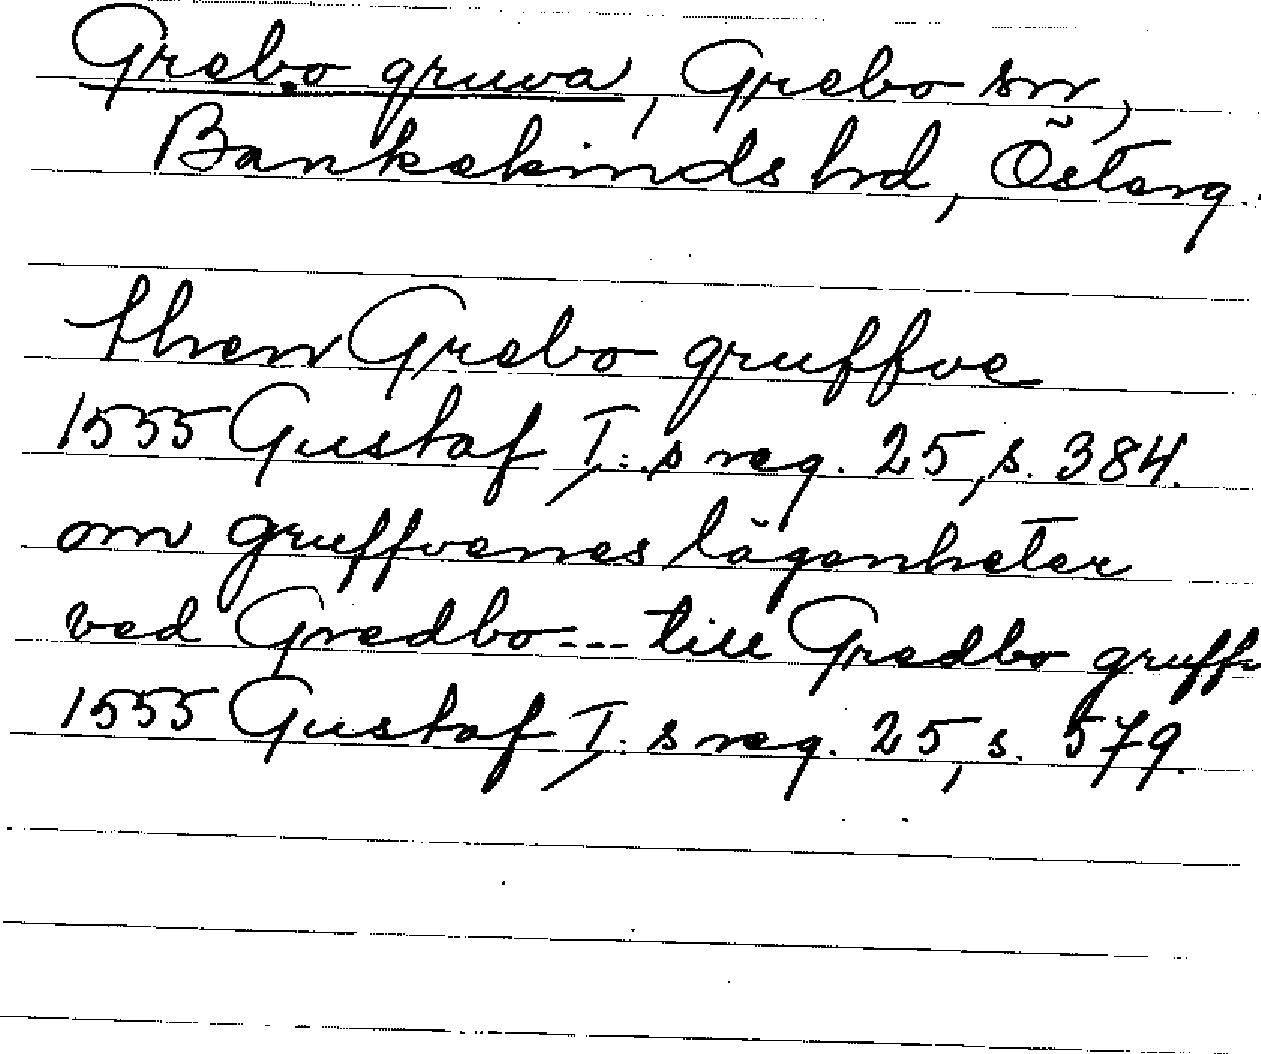 Grebo gruva, Grebo sn,
Bankekinds hrd, Österg.
then Grebo gruffve
1555 Gustaf I:s reg. 25, s. 384.
om gruffvenes lägenheter
ved Gredbo --- till Gredbo gruffv
1555 Gustaf I:s reg. 25, s. 579.